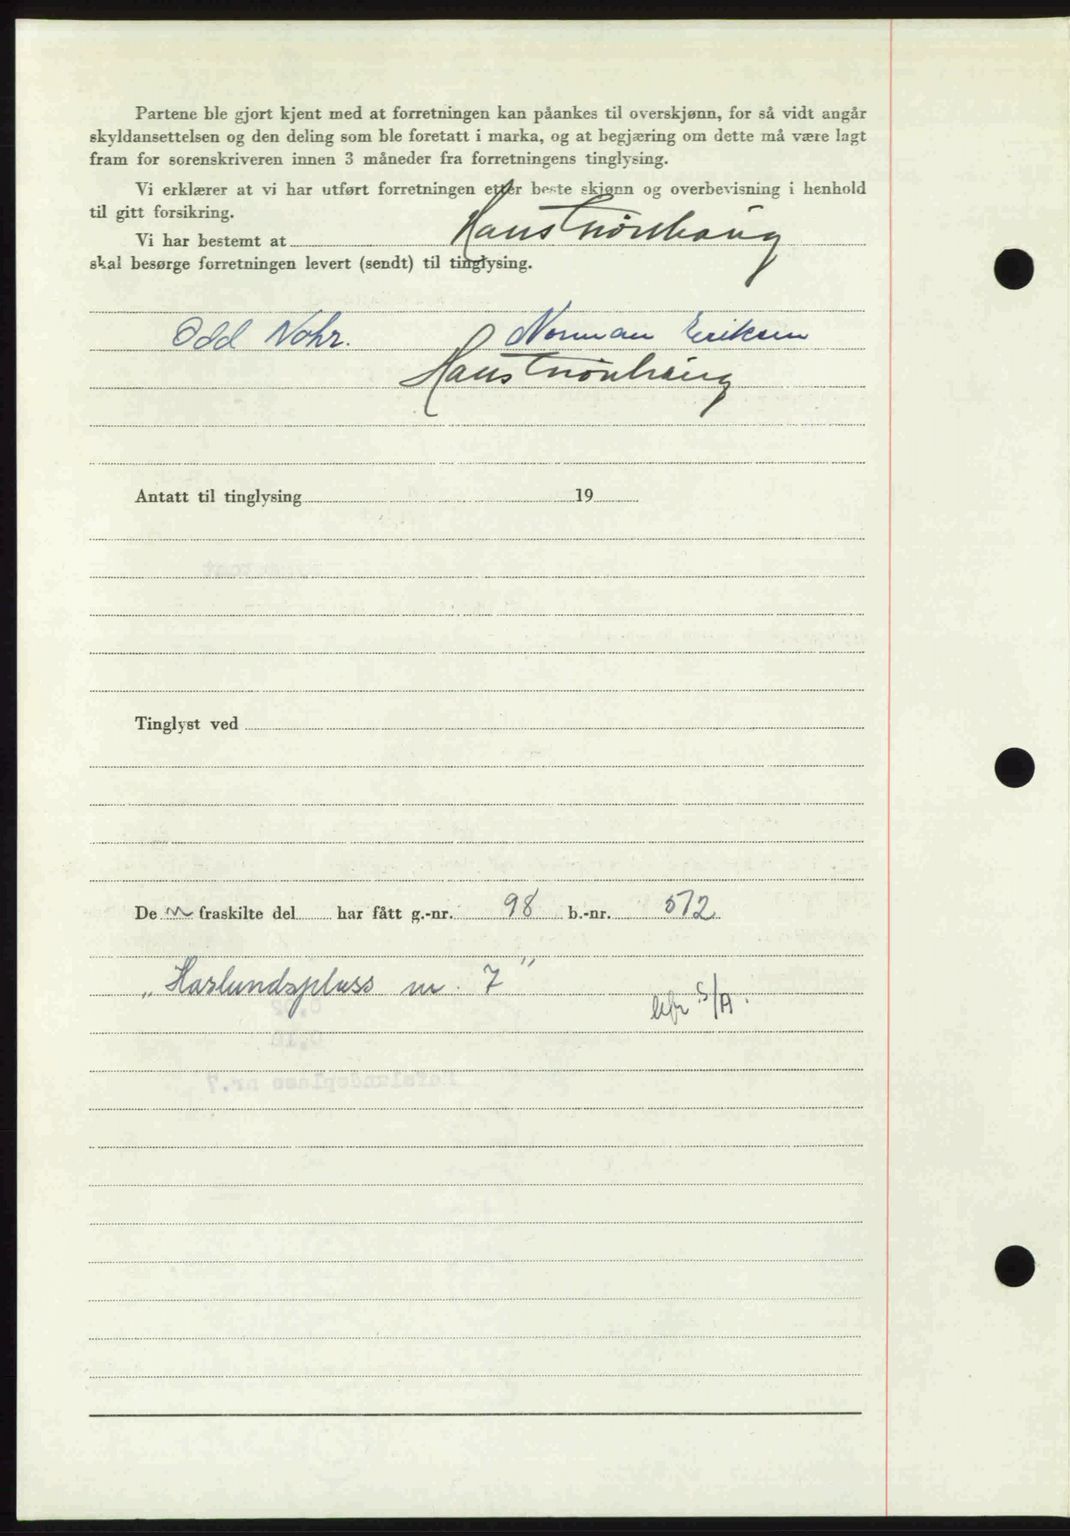 Partene ble gjort kjent med at forretningen kan påankes til overskjønn, for så vidt angår
skyldansettelsen og den deling som ble foretatt i marka, og at begjæring om dette må være lagt
fram for sorenskriveren innen 3 måneder fra forretningens tinglysing.
Vi erklærer at vi har utført forretningen etter beste skjønn og overbevisning i henhold
til gitt forsikring.
Vi har bestemt at Hans
skal besørge forretningen levert (sendt) til tinglysing.
Odd Nohr. Norman Eriksen
Hans
Antatt til tinglysing 19
Tinglyst ved
De n fraskilte del har fått g.-nr. 98 b.-nr. 572
nr. 7"